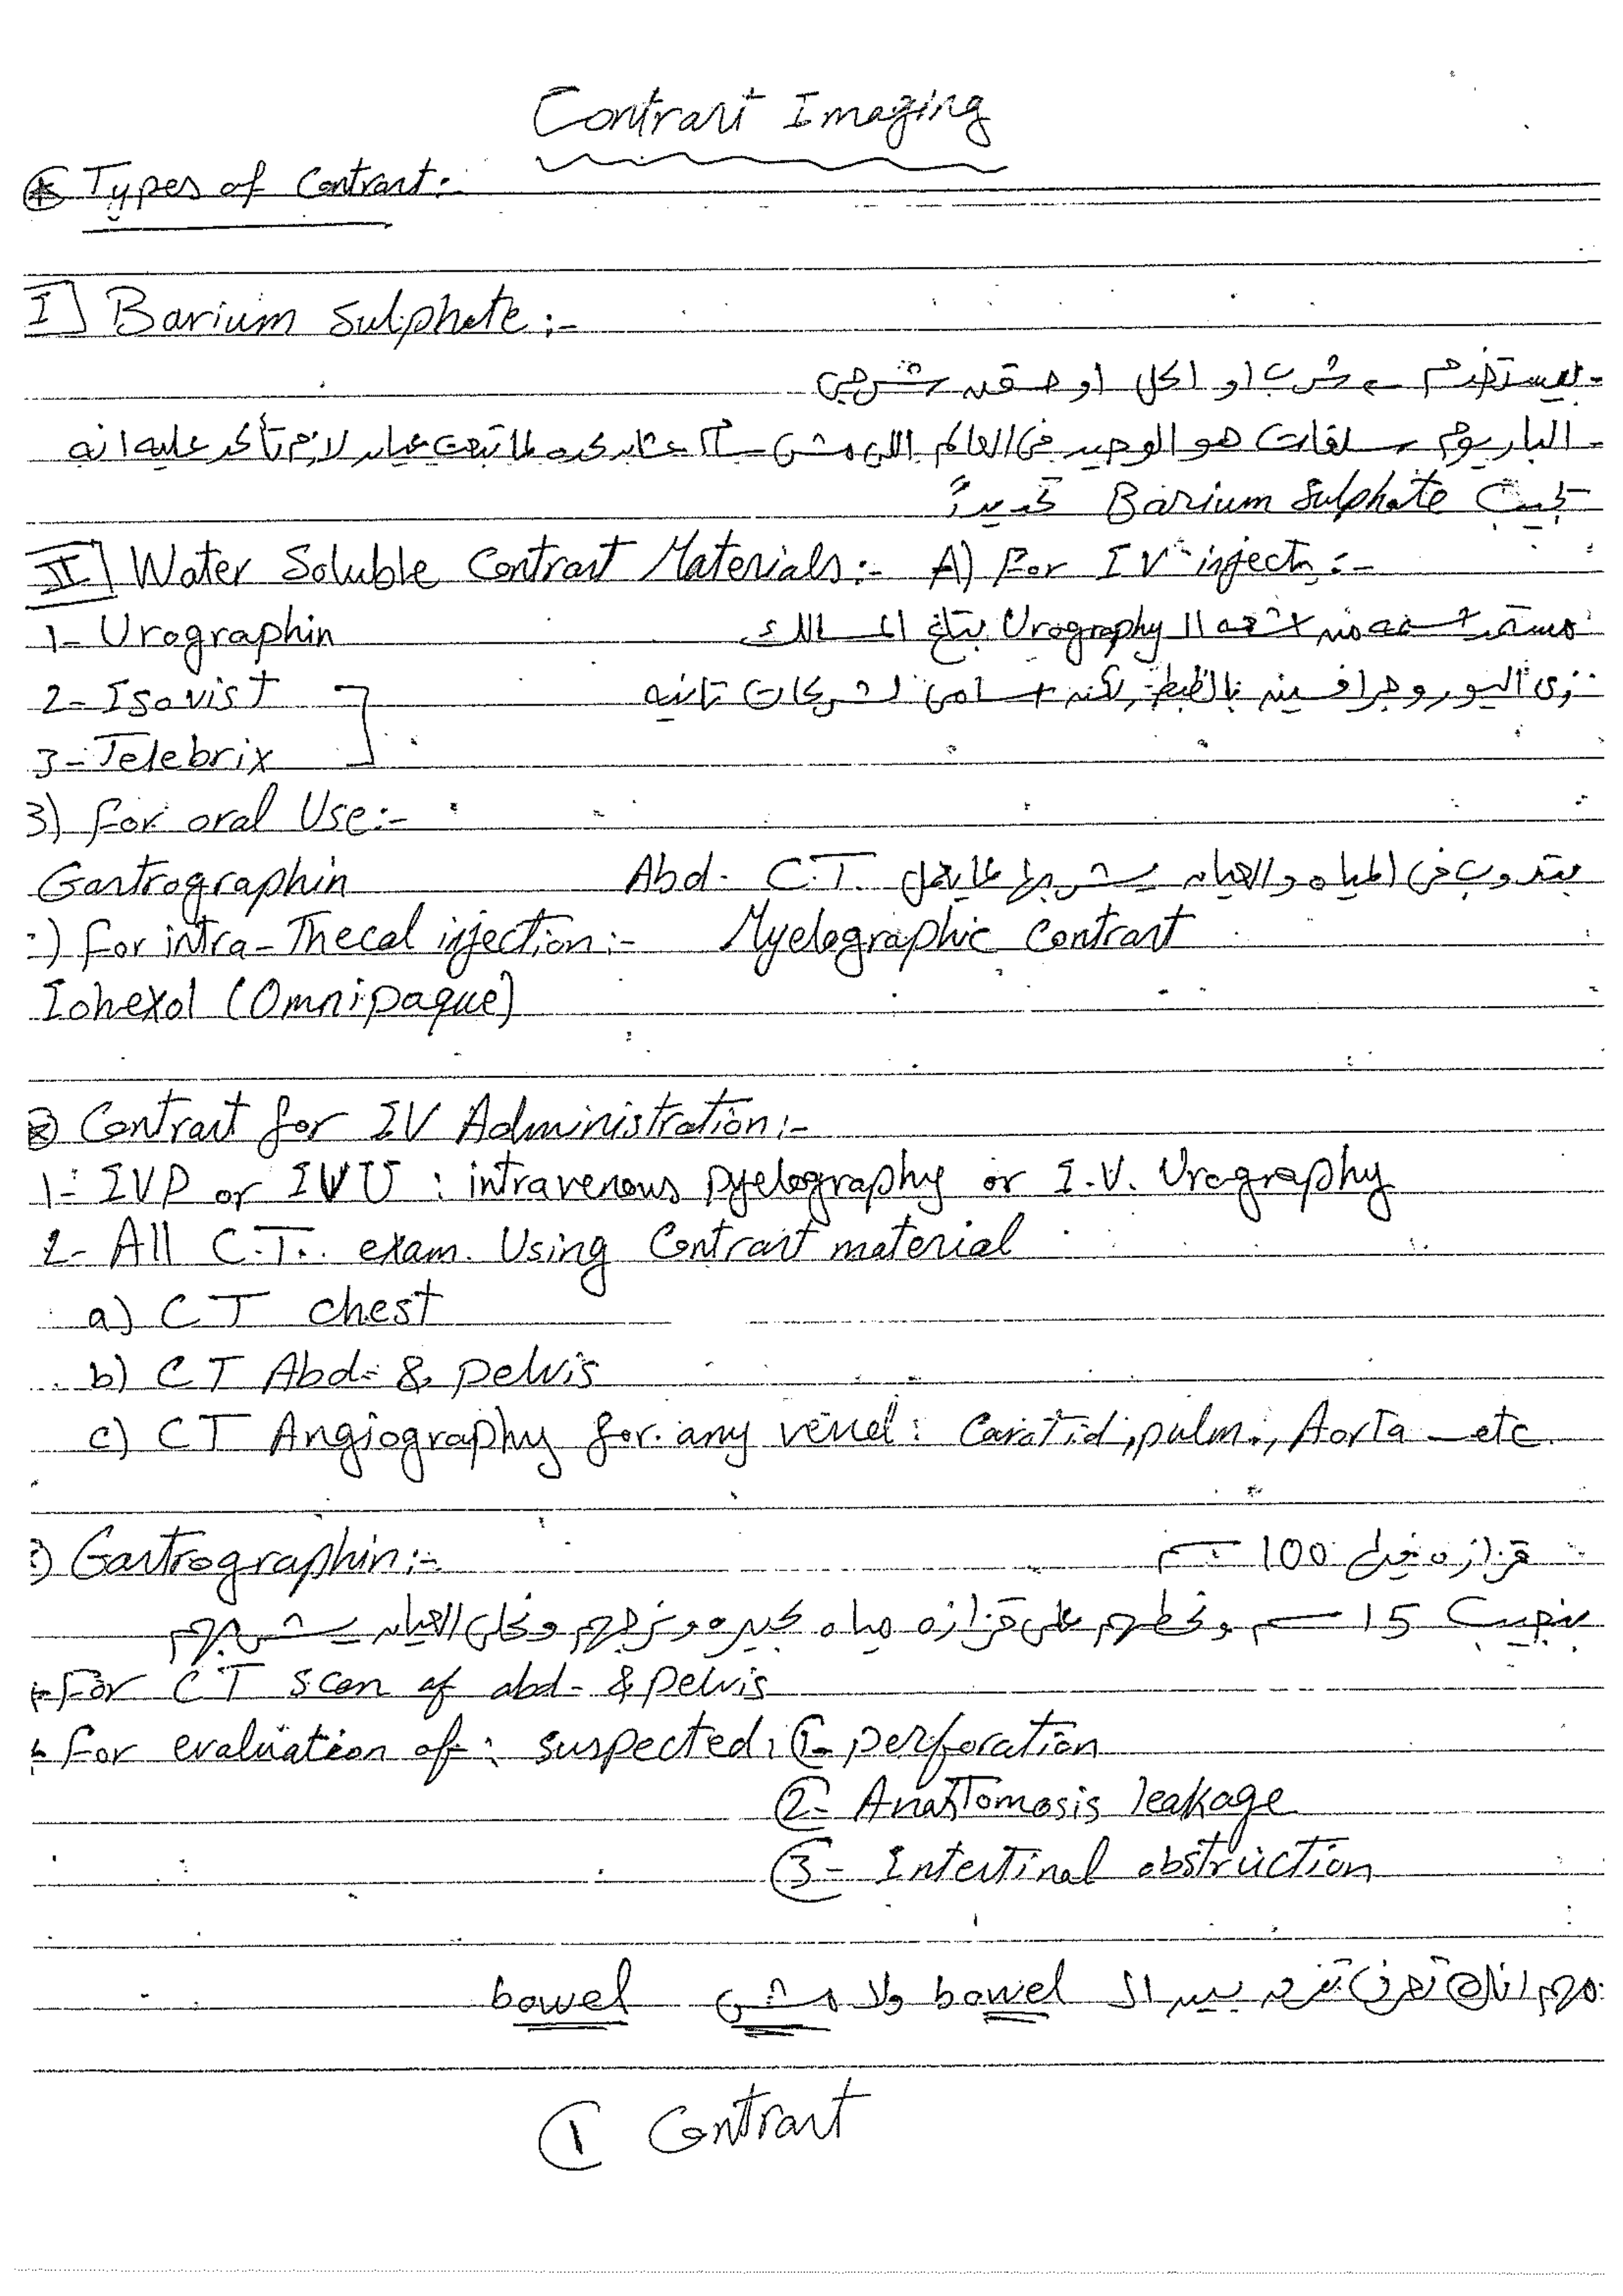 Contrast Imaging
* Types of Contrast:-
I] Barium Sulphate:-
- بيستخدم شرب او اكل او حقنه شرجي
- الباريوم سلفات هو الوحيد في العالم اللي مش سام عشان كده لما تبعت عيان لازم تأكد عليه انه
يجيب Barium Sulphate تحديداً
II] Water Soluble Contrast Materials:- A) For IV inject:-
1- Urographin
الـ Urography بتاع المسالك
2- Isovist
زي اليوروجرافين بالظبط لكنه اسامي لشركات تانيه
3- Telebrix
3) for oral Use:-
Gastrographin بتدوب في المياه والعيان يشربها لما يعمل Abd. C.T.
) for intra-Thecal injection:- Myelographic contrast
Iohexol (Omnipaque)
Contrast for IV Administration:-
1- IVP or IVU : intravenous pyelography or I.V. Urography
2- All C.T. exam. Using Contrast material
a) CT chest
b) CT Abd- & pelvis
c) CT Angiography for any vessel: Carotid, pulm., Aorta _ etc
) Gastrographin:- قزازه فيها 100 سم
بنجيب 15 سم ونحطهم على قزازه مياه كبيره ونرجهم ونخلي العيان يشربهم
For CT scan of abd- & pelvis
for evaluation of: suspected: 1- perforation
2- Anastomosis leakage
3- Intestinal obstruction
مهم انك تعرف تفرق بين الـ bowel ولا مش bowel
1 Contrast